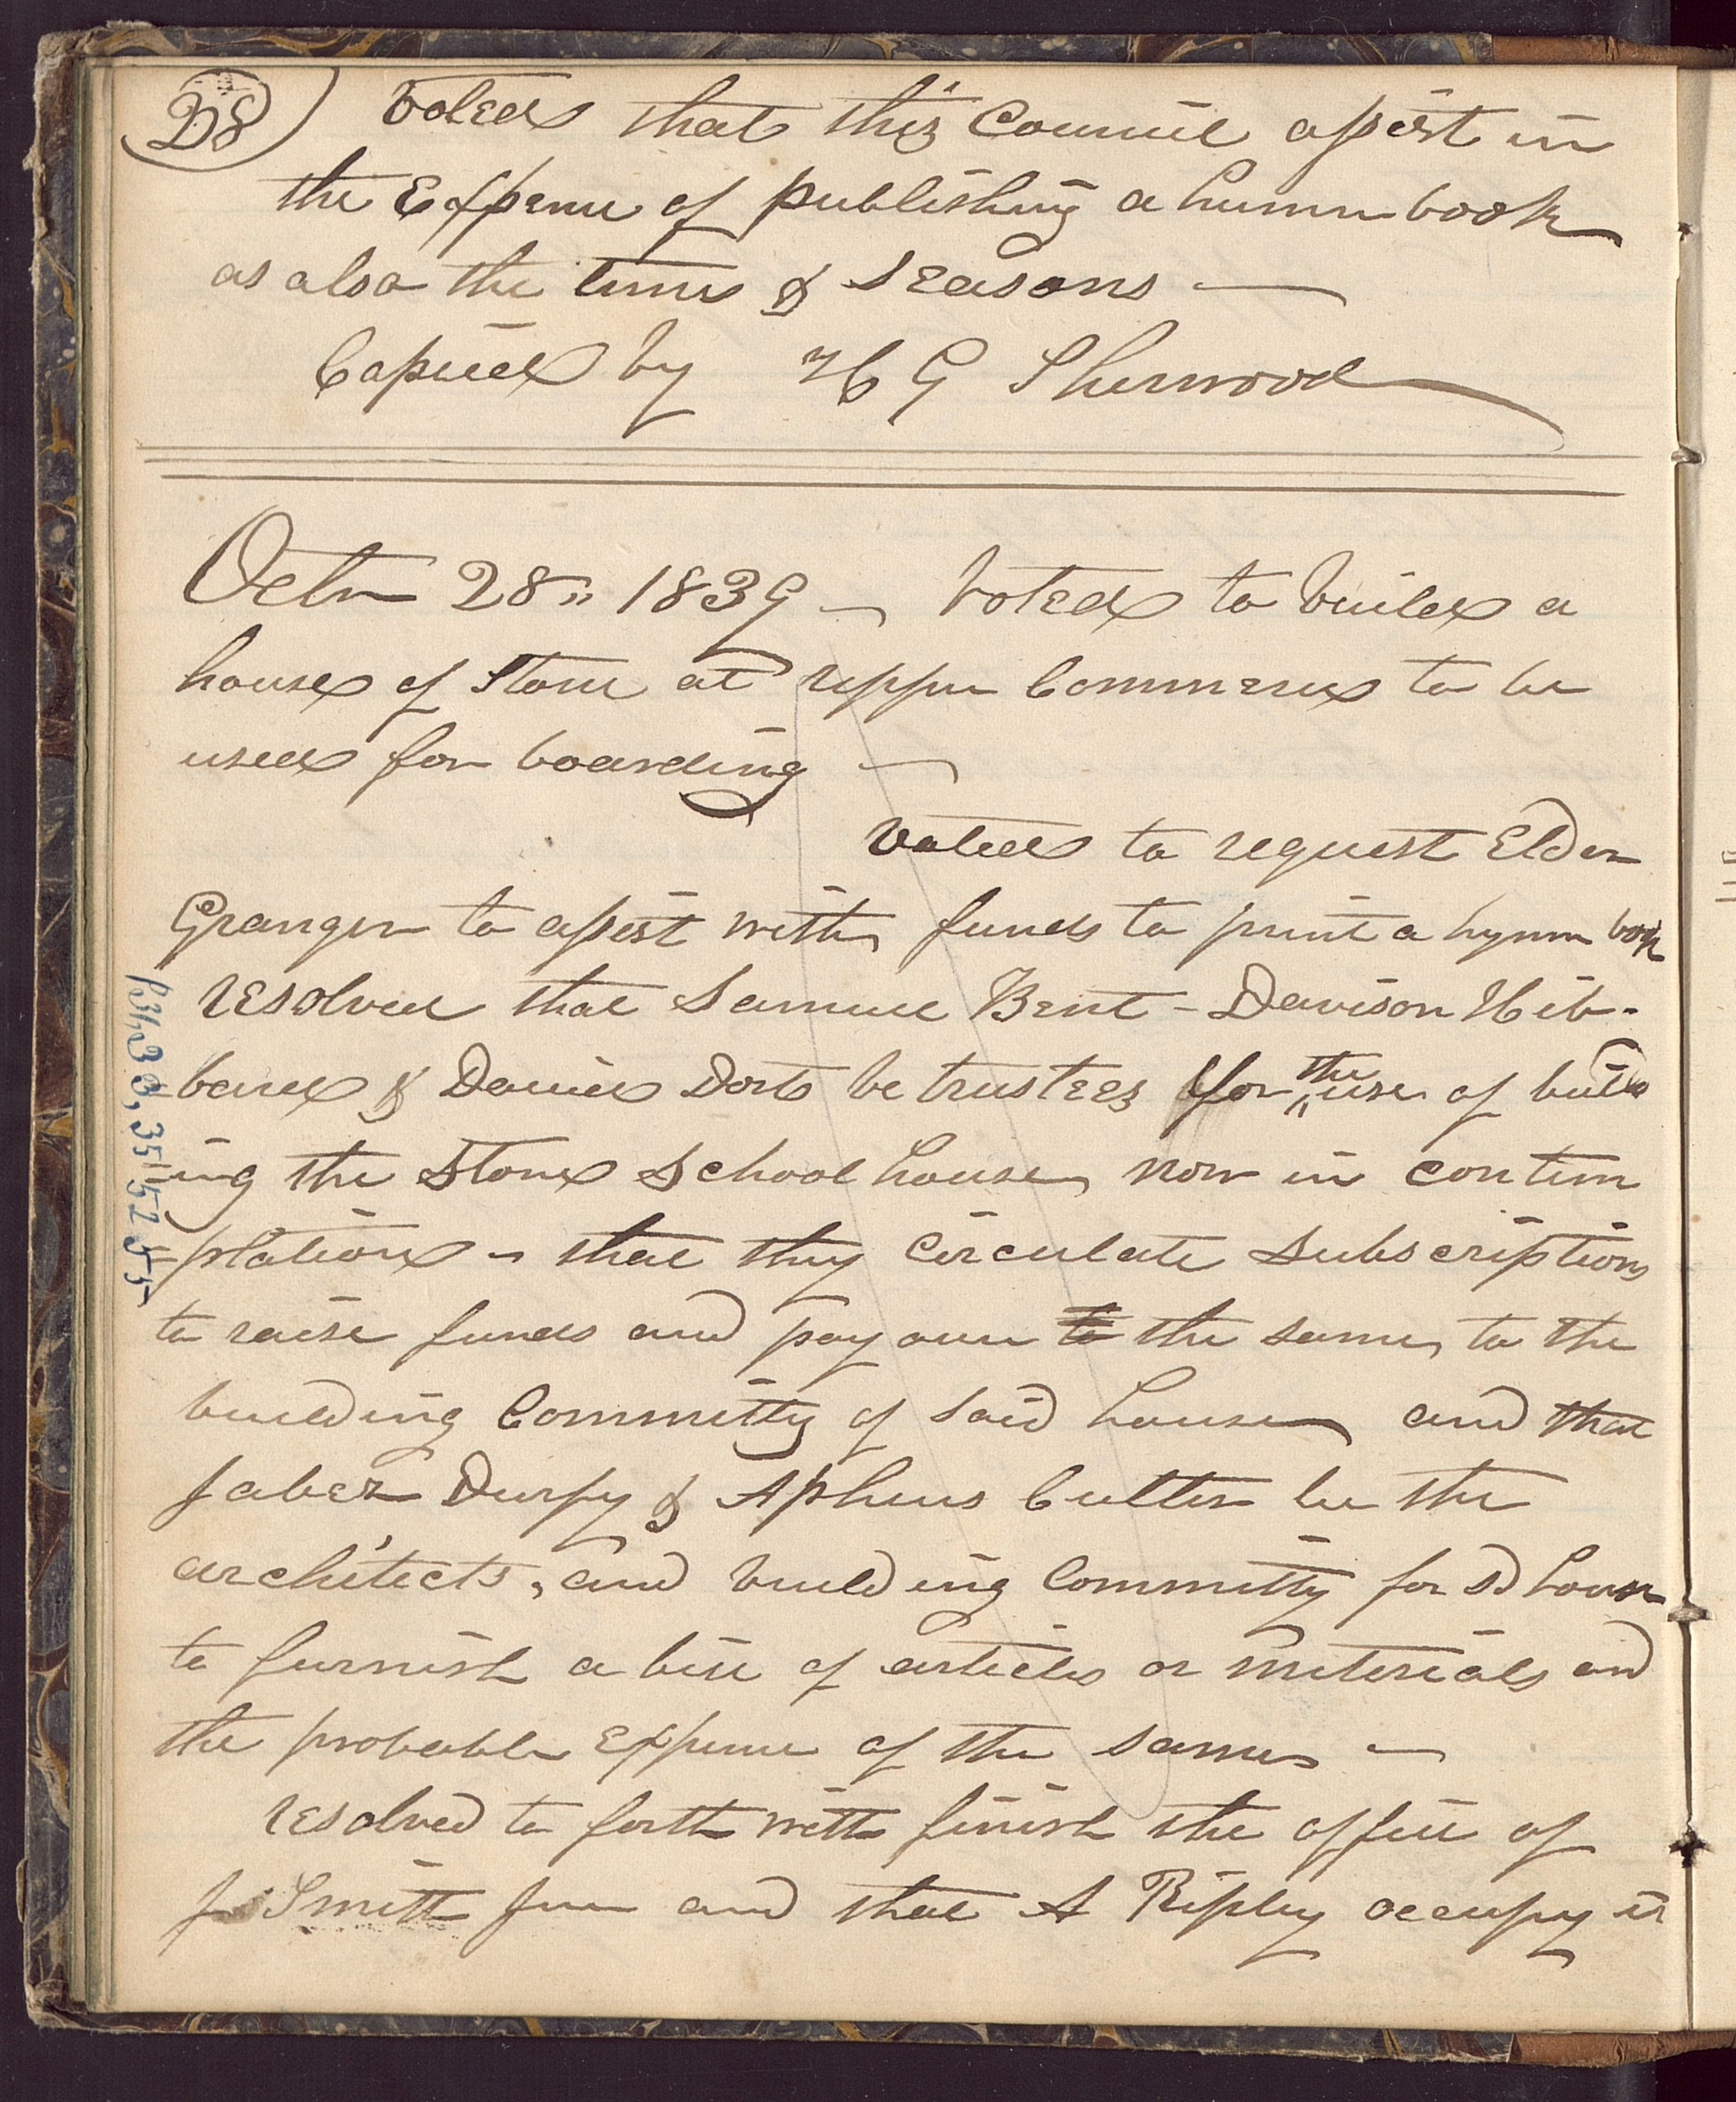 28) Voted that this Council assist in
the Expense of publishing a humn book
as also the times & Seasons —
Copied by H G Sherwood
Octr 28" 1839 — Voted to build a
house of Stone at upper Commerce to be
used for boarding —
Voted to request Elder
Granger to assist with funds to print a hymn book
resolved that Samuel Bent - Davison Hib-
bard & Daniel Dort be trustees for the use of build
ing the Stone School house, now in contem
plation - that they circulate Subscriptions
to raise funds and pay over to the same, to the
building Committy of said house and that
Jabez Durfy & Alpheus Cutler be the
architects, and building Committy for sd house
to furnish a bill of articles or materials and
the probable Expense of the same —
resolved to forth with finish the office of
J Smith Jun and that A Ripley occupy it